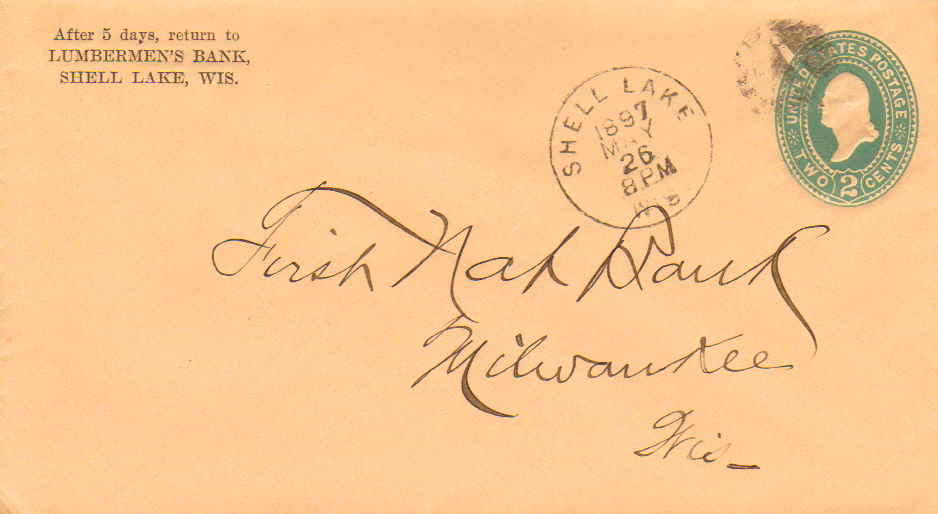 After 5 days, return to
LUMBERMEN'S BANK,
SHELL LAKE, WIS.
SHELL LAKE
1897
MAY
26
8 PM
WIS
UNITED STATES POSTAGE
TWO 2 CENTS
First Nat Bank
Milwaukee
Wis